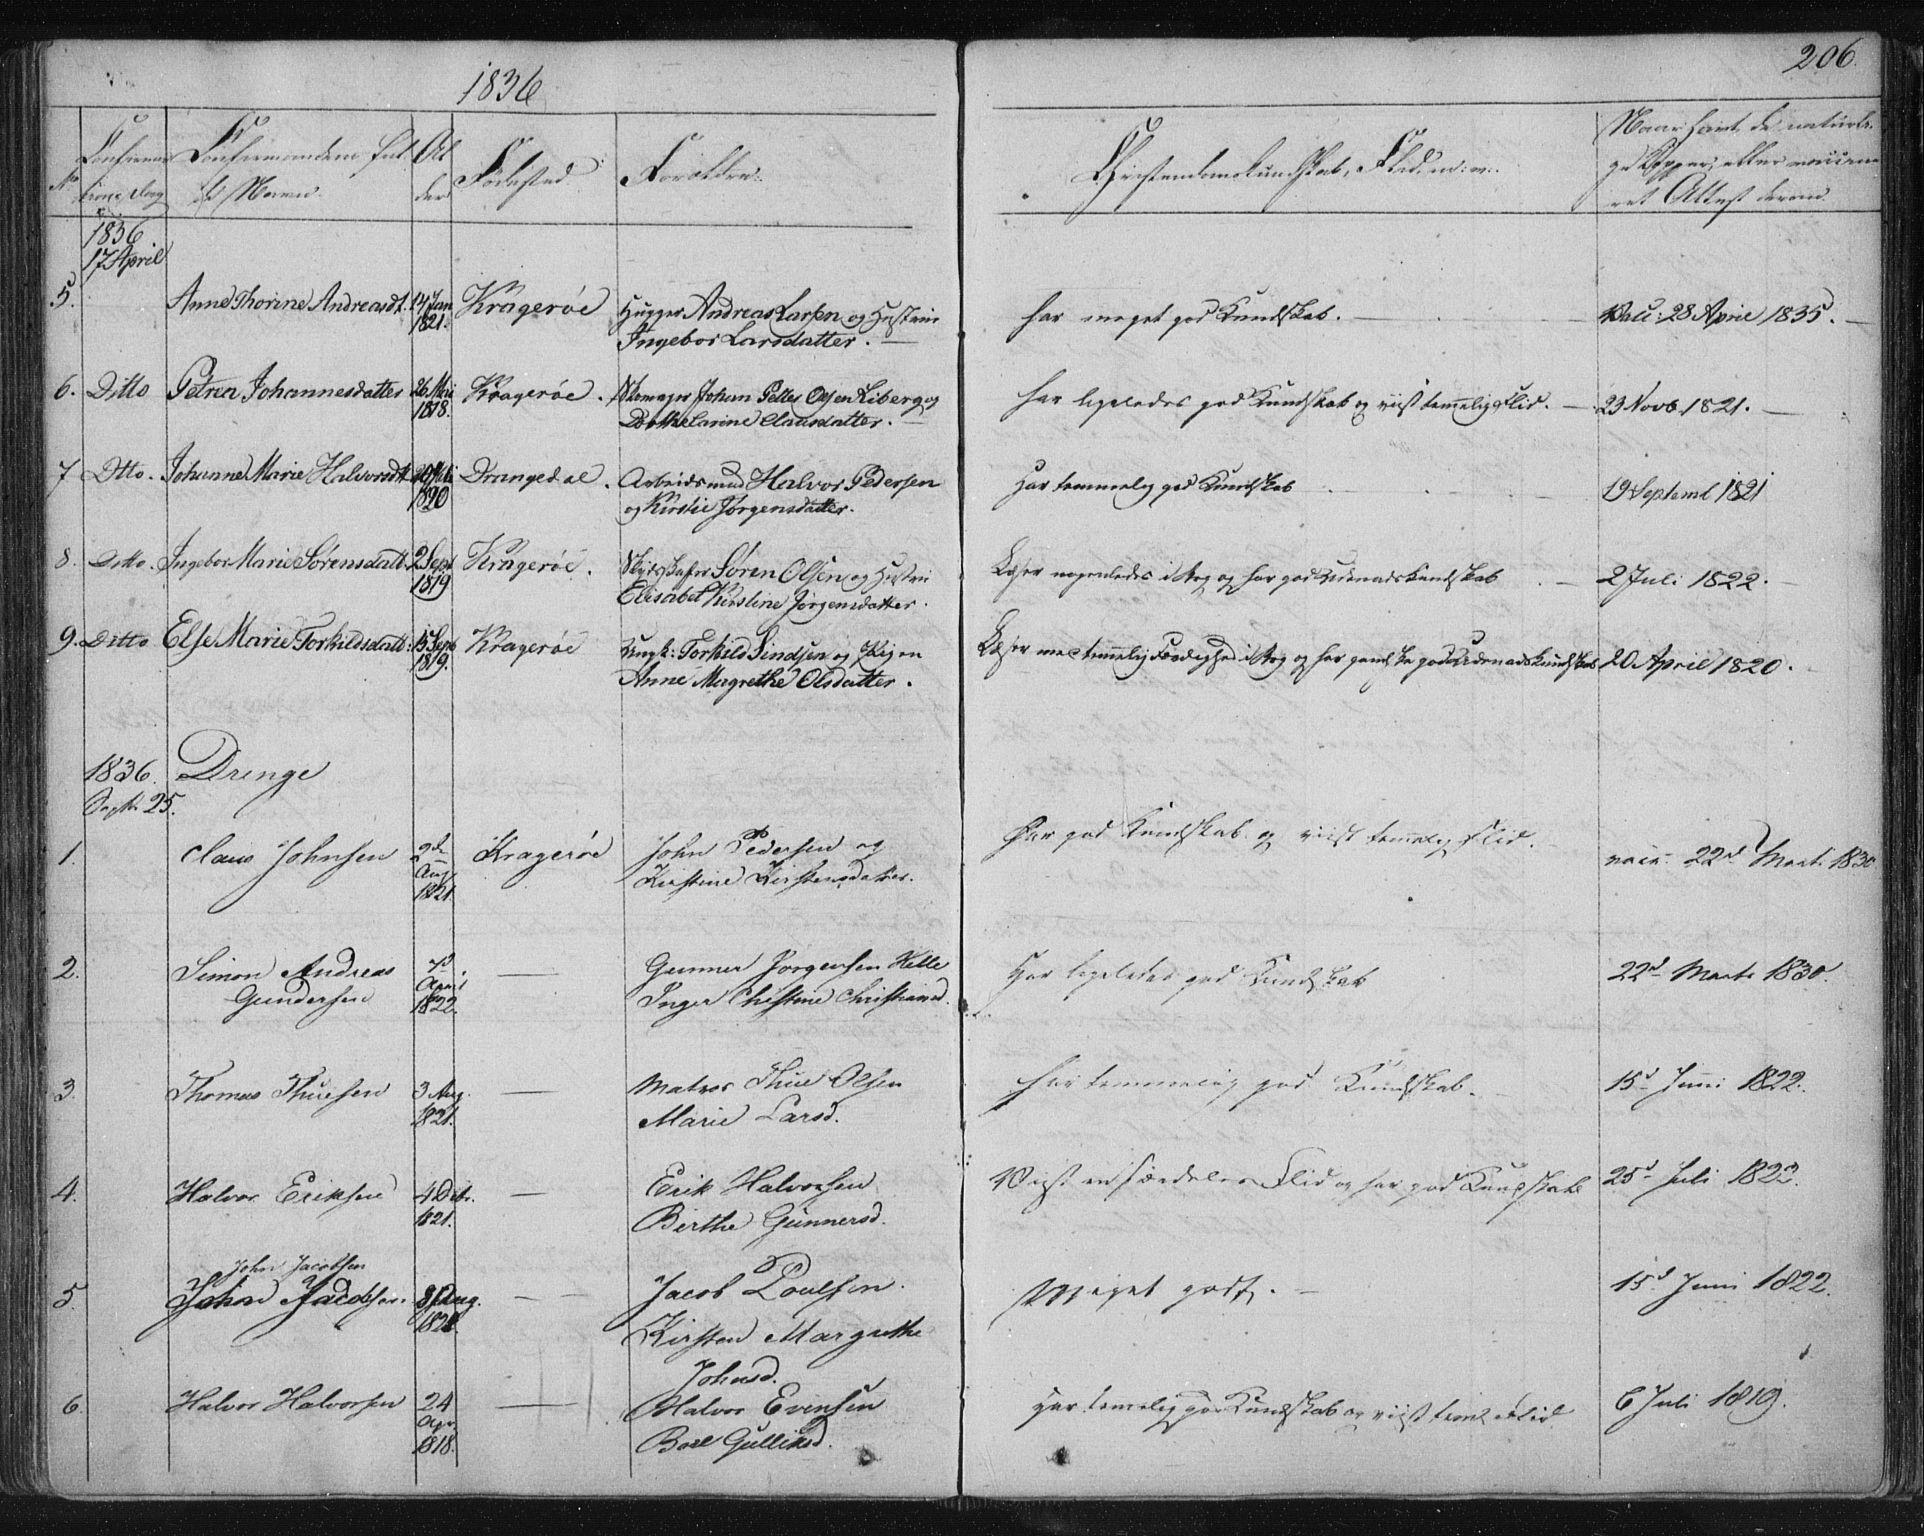 1836
206.
No
Confirmations Dag
Confirmandens fulde Navn
Alder
Fødested
Forældre
Christendoms Kundskab, Flid m: m:
1836
17 April
5. Anne Thorine Andreasdt. 14 Jan 1821. Kragerøe Andreas Larsen og Hustrue
Ingebor Larsdatter.
har meget god Kundskab. Vacc: 28 April 1835.
6. Ditto Petrea Johannesdatter 26 Mai 1818. Kragerøe. Skomager Johan Petter Olsen Liberg og
Dorthe Carine Clausdatter.
har ligeledes god Kundskab og viist temmelig Flid. 23 Novb 1821.
7 Ditto. Johanne Marie Halvorsdt 1820 Drangedal. Arbeidsmand Halvor Pedersen
og Kirstie Jørgensdatter.
Har temmelig god Kundskab 19 Septemb 1821
8. Ditto. Ingebor Marie Sørensdatt. 2 Sept 1819 Kragerøe. Søren Olsen og Hustrue
Elisabet Kirstine Jørgensdatter.
Læser nogenledes i Bog og har god Udenadskundskab 2 Juli 1822.
9. Ditto Else Marie Torkildsdatt: 15 Sept 1819. Kragerøe Ungk: Torkild Simdsen og Pigen
Anne Magrethe Olsdatter.
Læser med temmelig Færdighed i Bog og har ganske god Udenadskundskab 20 April 1820.
1836. Drenge
Septb. 25.
1. Claus Johnsen 2d Aug 1821. Kragerøe John Pedersen og
Kirstine Kirstensdatter.
Har god Kundskab og viist temmelig Flid. vacc. 22d Marts 1830
2. Simon Andreas
Gundersen 7d April 1822. — Gunner Jørgensen Helle
Inger Christine Christiansd.
Har ligeledes god Kundskab 22d Marts 1830.
3. Thomas Thuesen 3 Aug. 1821. — Matros Thue Olsen
Marie Larsd.
har temmelig god Kundskab. 15d Juni 1822.
4. Halvor Eriksen 4 Dcbr. 1821. — Erik Halvorsen
Birthe Gunnersd.
Viist en særdeles Flid og har god Kundskab 25d Juli 1822.
John Jacobsen
5. Johan Jacobsen. Aug. 1821. — Jacob Poulsen.
Kirsten Margrethe
Johnsd.
Meget godt. — 15d Juni 1822.
6. Halvor Halvorsen 24 Apr. 1818. — Halvor Evensen
Boel Gulliksd.
Har temelig god Kundskab og viist teml. Flid 6 Juli 1819.